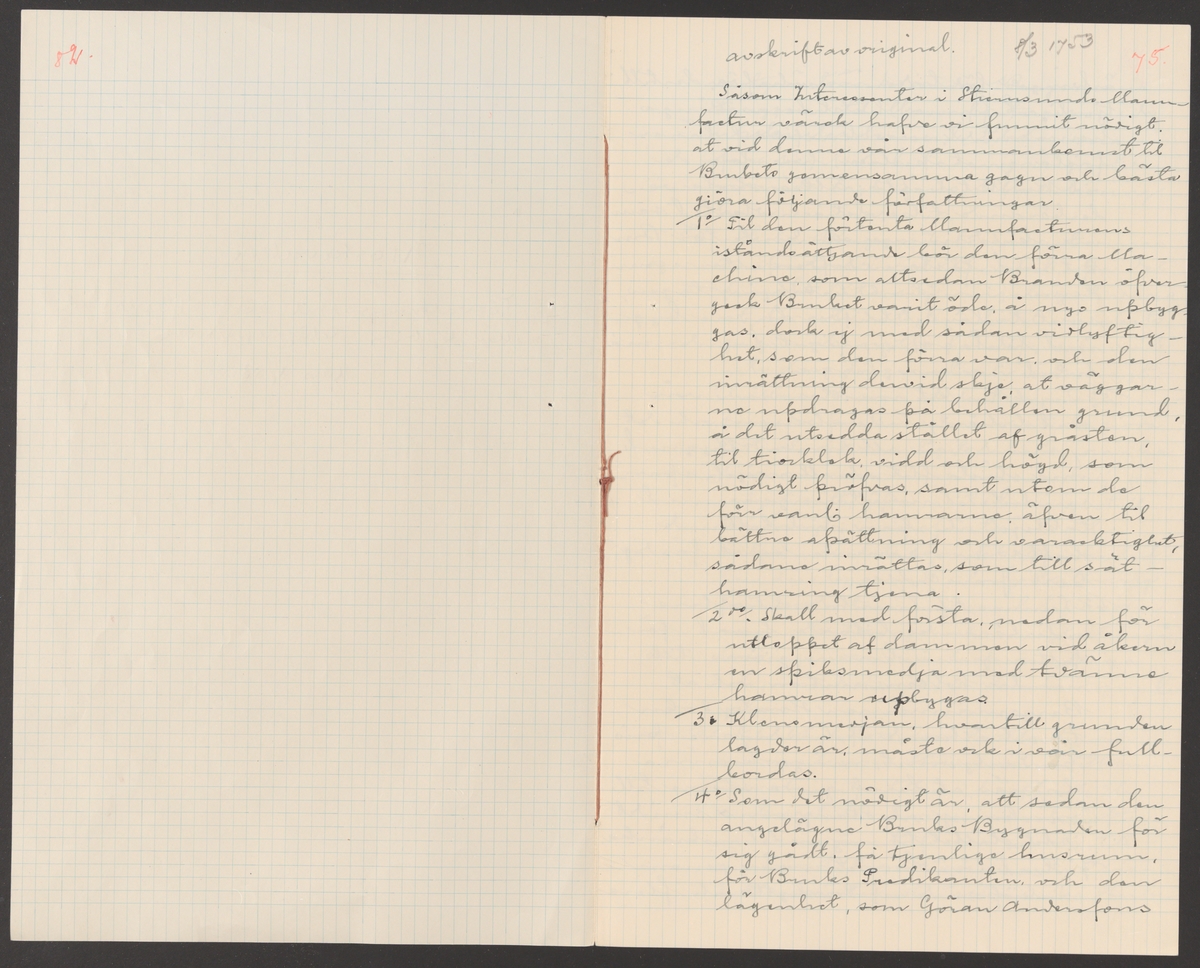 82.
avskrift av original.
8/3 1753
75.
Såsom Interessenter i Stiernsunds Manu-
factur värck hafve vi funnit nödigt,
at vid denne vår sammankomst til
Brukets gemensamma gagn och bästa
giöra följande författningar
1º Til den förtenta Manufacturens
iståndsättjande bör den förra Ma-
chine, som altsedan Branden öfver-
geck Bruket varit öde, å nyo upbyg-
gas, dock ej med sådan vidlyftig-
het, som den förra var, och den
inrättning dervid skje, at väggar-
ne updragas på behållen grund,
å det utsedda stället af gråsten,
til tiocklek, vidd och högd, som
nödigt pröfvas, samt utom de
förr vanl: hamrarne, äfven til
bättre afsättning och varacktighet,
sådane inrättas, som till sät-
hamring tjena.
2do. Skall med första, nedan för
utloppet af dammen vid åkern
en spiksmedja med tvänne
hamrar upbygas.
3. Klensmedjan, hvartill grunden
lagder är, måste ock i vår full-
bordas.
4º Som det nödigt är, att sedan den
angelägne Bruks Bygnaden för
sig gådt, få tjenlige husrum,
för Bruks Predikanten, och den
lägenhet, som Göran Anderssons